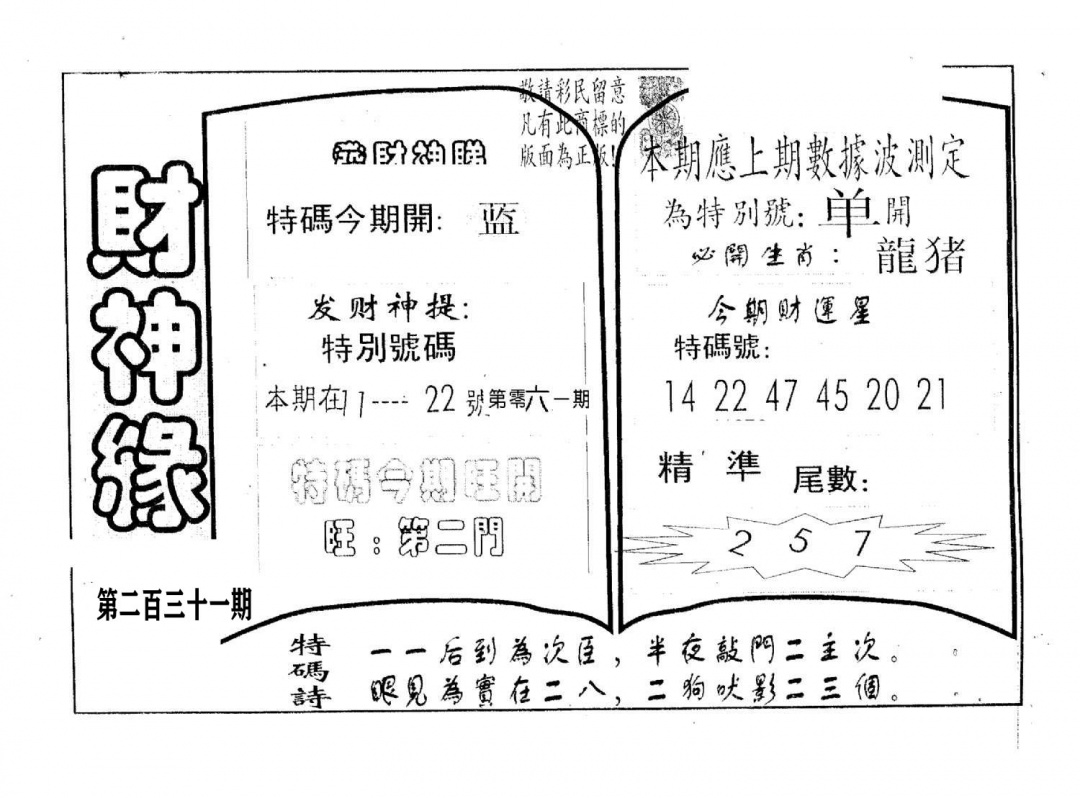 財神緣
第二百三十一期
敬請彩民留意
凡有此商標的
版面為正版!
特碼今期開: 蓝
发财神提:
特別號碼
本期在11----22號第零六一期
特碼今期旺開
旺:第二門
本期應上期數據波測定
為特別號:单開
必開生肖: 龍猪
今期財運星
特碼號:
14 22 47 45 20 21
精 準 尾數:
2 5 7
特碼詩
一一后到為次臣,半夜敲門二主次。
眼見為實在二八,二狗吠影二三個。